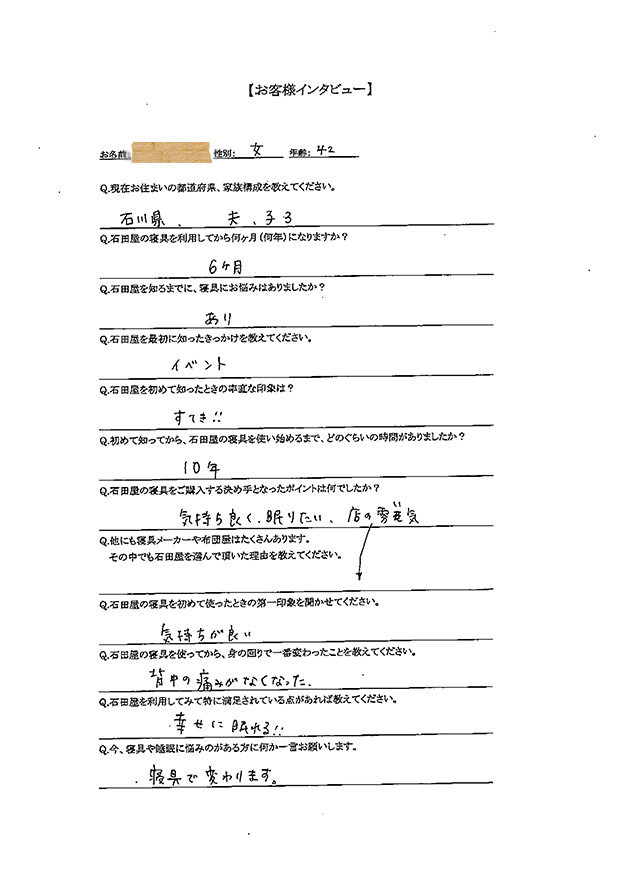 【お客様インタビュー】
お名前 性別： 女 年齢： 42
Q.現在お住まいの都道府県、家族構成を教えてください。
石川県、 夫、子3
Q.石田屋の寝具を利用してから何ヶ月（何年）になりますか？
6ヶ月
Q.石田屋を知るまでに、寝具にお悩みはありましたか？
あり
Q.石田屋を最初に知ったきっかけを教えてください。
イベント
Q.石田屋を初めて知ったときの率直な印象は？
すてき!!
Q.初めて知ってから、石田屋の寝具を使い始めるまで、どのぐらいの時間がありましたか？
10年
Q.石田屋の寝具をご購入する決め手となったポイントは何でしたか？
気持ち良く、眠りたい、店の雰囲気
Q.他にも寝具メーカーや布団屋はたくさんあります。
その中でも石田屋を選んで頂いた理由を教えてください。
Q.石田屋の寝具を初めて使ったときの第一印象を聞かせてください。
気持ちが良い
Q.石田屋の寝具を使ってから、身の回りで一番変わったことを教えてください。
背中の痛みがなくなった。
Q.石田屋を利用してみて特に満足されている点があれば教えてください。
幸せに眠れる!!
Q.今、寝具や睡眠に悩みのある方に何か一言お願いします。
寝具で変わります。